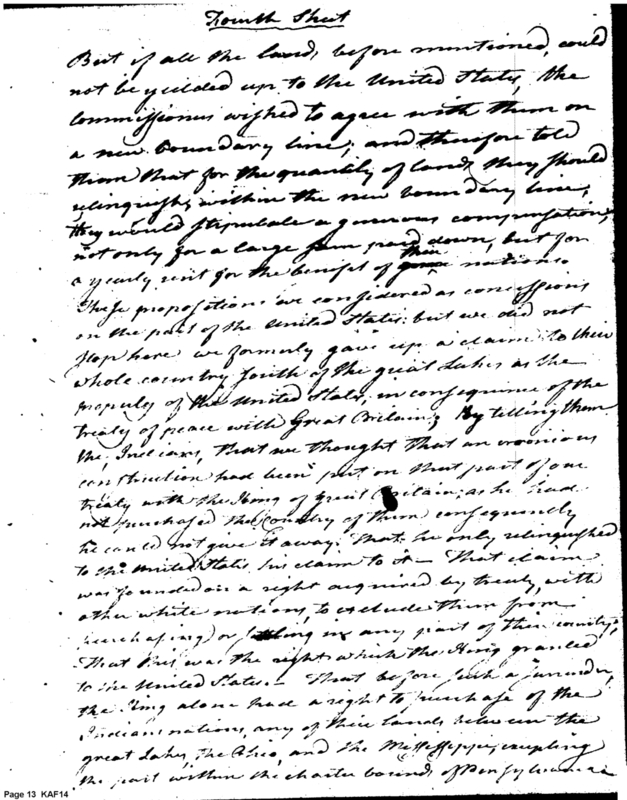 Fourth Sheet
But if all the lands, before mentioned, could
not be yielded up to the United States, the
commissioners wished to agree with them on
a new boundary line; and therefore told
them that for the quantity of lands they should
relinquish, within the new boundary line,
they would stipulate a generous compensation,
not only for a large sum paid down, but for
a yearly rent for the benefit of their nations
These propositions we considered as concessions
on the part of the United States: but we did not
stop here we formerly gave up a claim to their
whole country south of the great Lakes as the
property of the United States, in consequence of the
treaty of peace with Great Britain; by telling them
the, Indians, that we thought that an erronious
construction had been put on that part of our
treaty with the King of Great Britain; as he had
not purchased the Country of them consequently
he could not give it away. That he only relinquished
to the United States his claim to it — That claim
was founded on a right acquired by treaty, with
other white nations, to exclude them from
purchasing or settling in any part of their country;
That this was the right which the King granted
to the United States. — That before such a surrender,
the King alone had a right to purchase of the
Indian nations, any of their Lands between the
great Lakes, the Ohio, and the Missisippy, excepting
the part within the charter bounds of Pensylvania
Page 13 KAF14